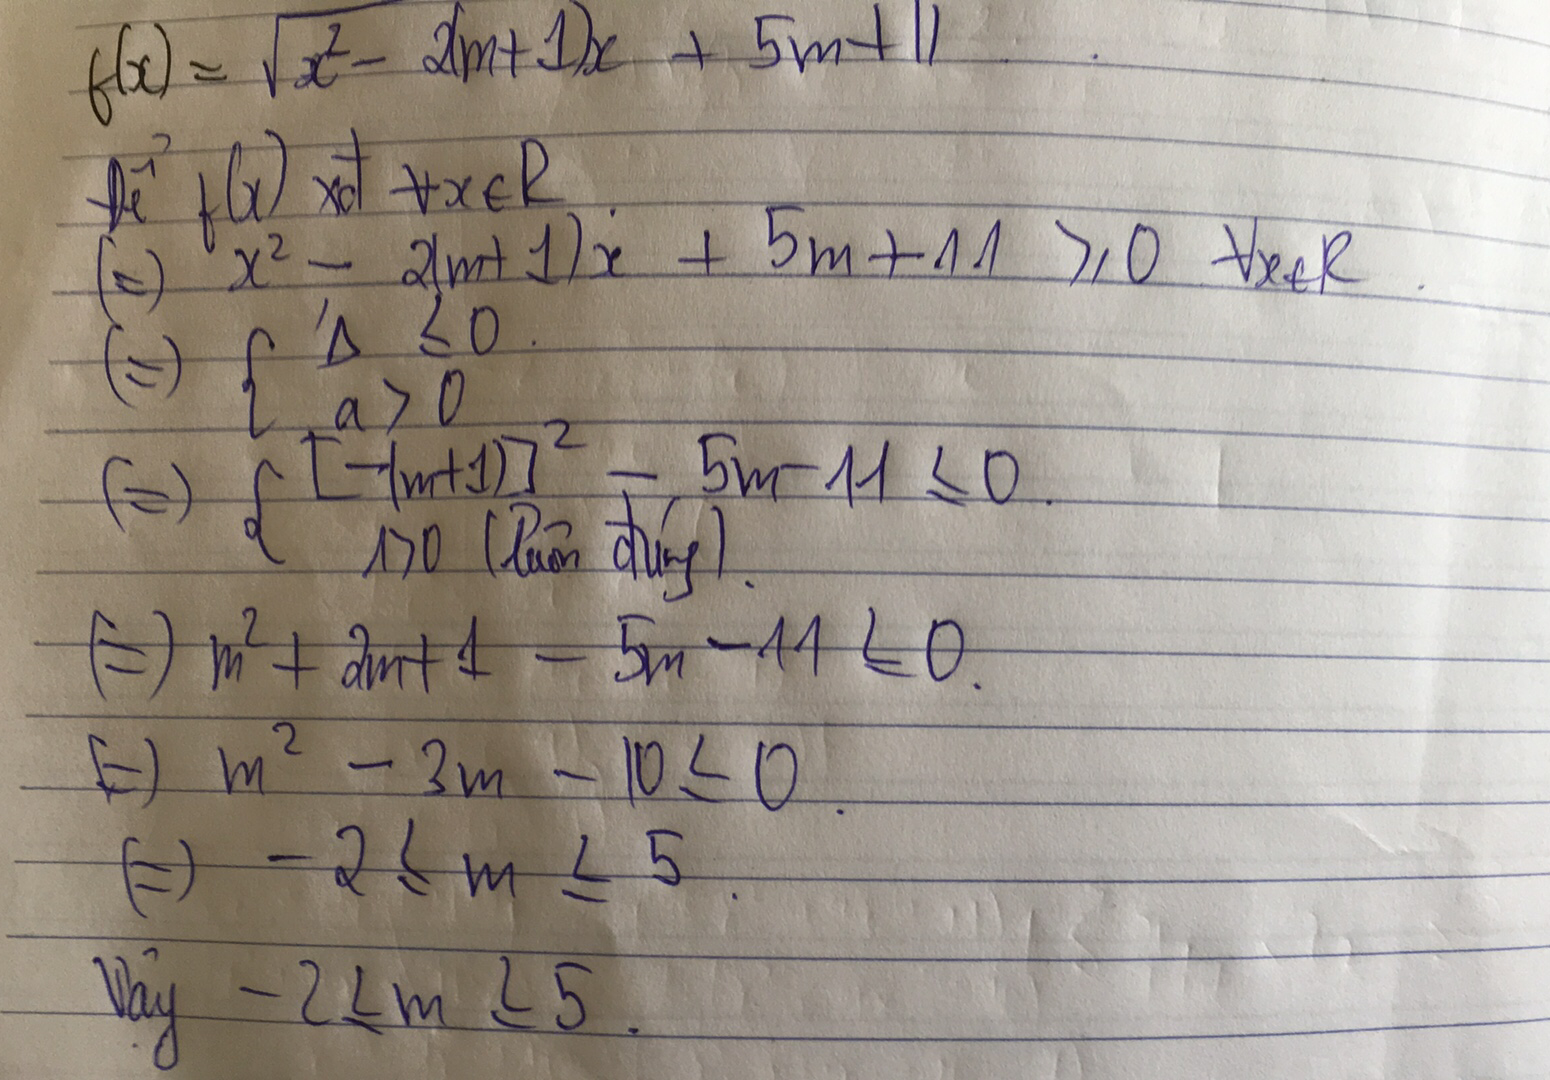 f(x) = √x² - 2(m+1)x + 5m+11
Để f(x) xđ ∀x∈R
(=) x² - 2(m+1)x + 5m+11 ≥ 0 ∀x∈R.
(=) { Δ' ≤ 0.
a > 0
(=) { [-(m+1)]² - 5m-11 ≤ 0.
1>0 (luôn đúng).
(=) m² + 2m+1 - 5m-11 ≤ 0.
(=) m² - 3m - 10 ≤ 0.
(=) -2 ≤ m ≤ 5.
Vậy -2 ≤ m ≤ 5.